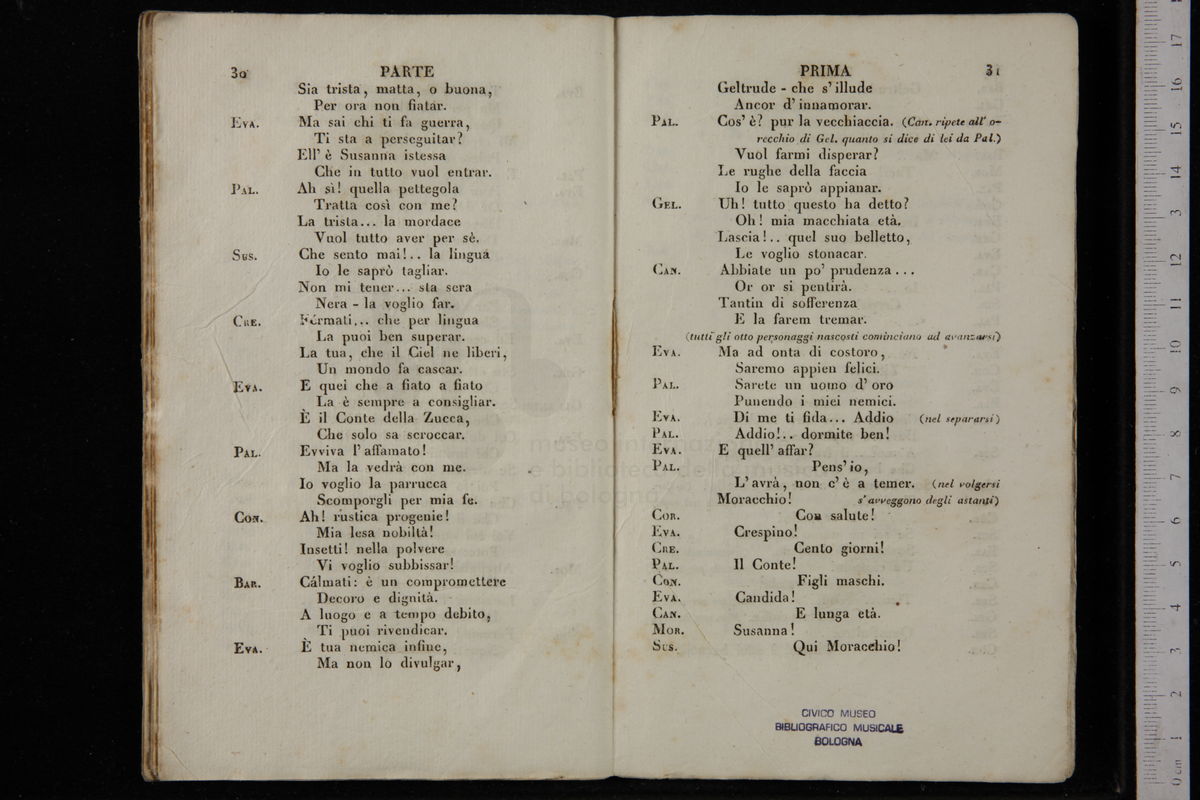 30 PARTE
Sia trista, matta, o buona,
Per ora non fiatar.
EVA. Ma sai chi ti fa guerra,
Ti sta a perseguitar?
Ell' è Susanna istessa
Che in tutto vuol entrar.
PAL. Ah sì! quella pettegola
Tratta così con me?
La trista... la mordace
Vuol tutto aver per sè.
SUS. Che sento mai!.. la lingua
Io le saprò tagliar.
Non mi tener... sta sera
Nera - la voglio far.
CRE. Férmati... che per lingua
La puoi ben superar.
La tua, che il Ciel ne liberi,
Un mondo fa cascar.
EVA. E quei che a fiato a fiato
La è sempre a consigliar.
È il Conte della Zucca,
Che solo sa scroccar.
PAL. Evviva l' affamato!
Ma la vedrà con me.
Io voglio la parrucca
Scomporgli per mia fe.
CON. Ah! rustica progenie!
Mia lesa nobiltà!
Insetti! nella polvere
Vi voglio subbissar!
BAR. Cálmati: è un compromettere
Decoro e dignità.
A luogo e a tempo debito,
Ti puoi rivendicar.
EVA. È tua nemica infine,
Ma non lo divulgar,
PRIMA 31
Geltrude - che s' illude
Ancor d' innamorar.
PAL. Cos' è? pur la vecchiaccia. (Can. ripete all' o-
recchio di Gel. quanto si dice di lei da Pal.)
Vuol farmi disperar?
Le rughe della faccia
Io le saprò appianar.
GEL. Uh! tutto questo ha detto?
Oh! mia macchiata età.
Lascia!.. quel suo belletto,
Le voglio stonacar.
CAN. Abbiate un po' prudenza...
Or or si pentirà.
Tantin di sofferenza
E la farem tremar.
(tutti gli otto personaggi nascosti cominciano ad avanzarsi)
EVA. Ma ad onta di costoro,
Saremo appien felici.
PAL. Sarete un uomo d' oro
Punendo i miei nemici.
EVA. Di me ti fida... Addio (nel separarsi)
PAL. Addio!.. dormite ben!
EVA. E quell' affar?
PAL. Pens' io,
L' avrà, non c' è a temer. (nel volgersi
Moracchio! s' avveggono degli astanti)
COR. Con salute!
EVA. Crespino!
CRE. Cento giorni!
PAL. Il Conte!
CON. Figli maschi.
EVA. Candida!
CAN. E lunga età.
MOR. Susanna!
SUS. Qui Moracchio!
CIVICO MUSEO
BIBLIOGRAFICO MUSICALE
BOLOGNA